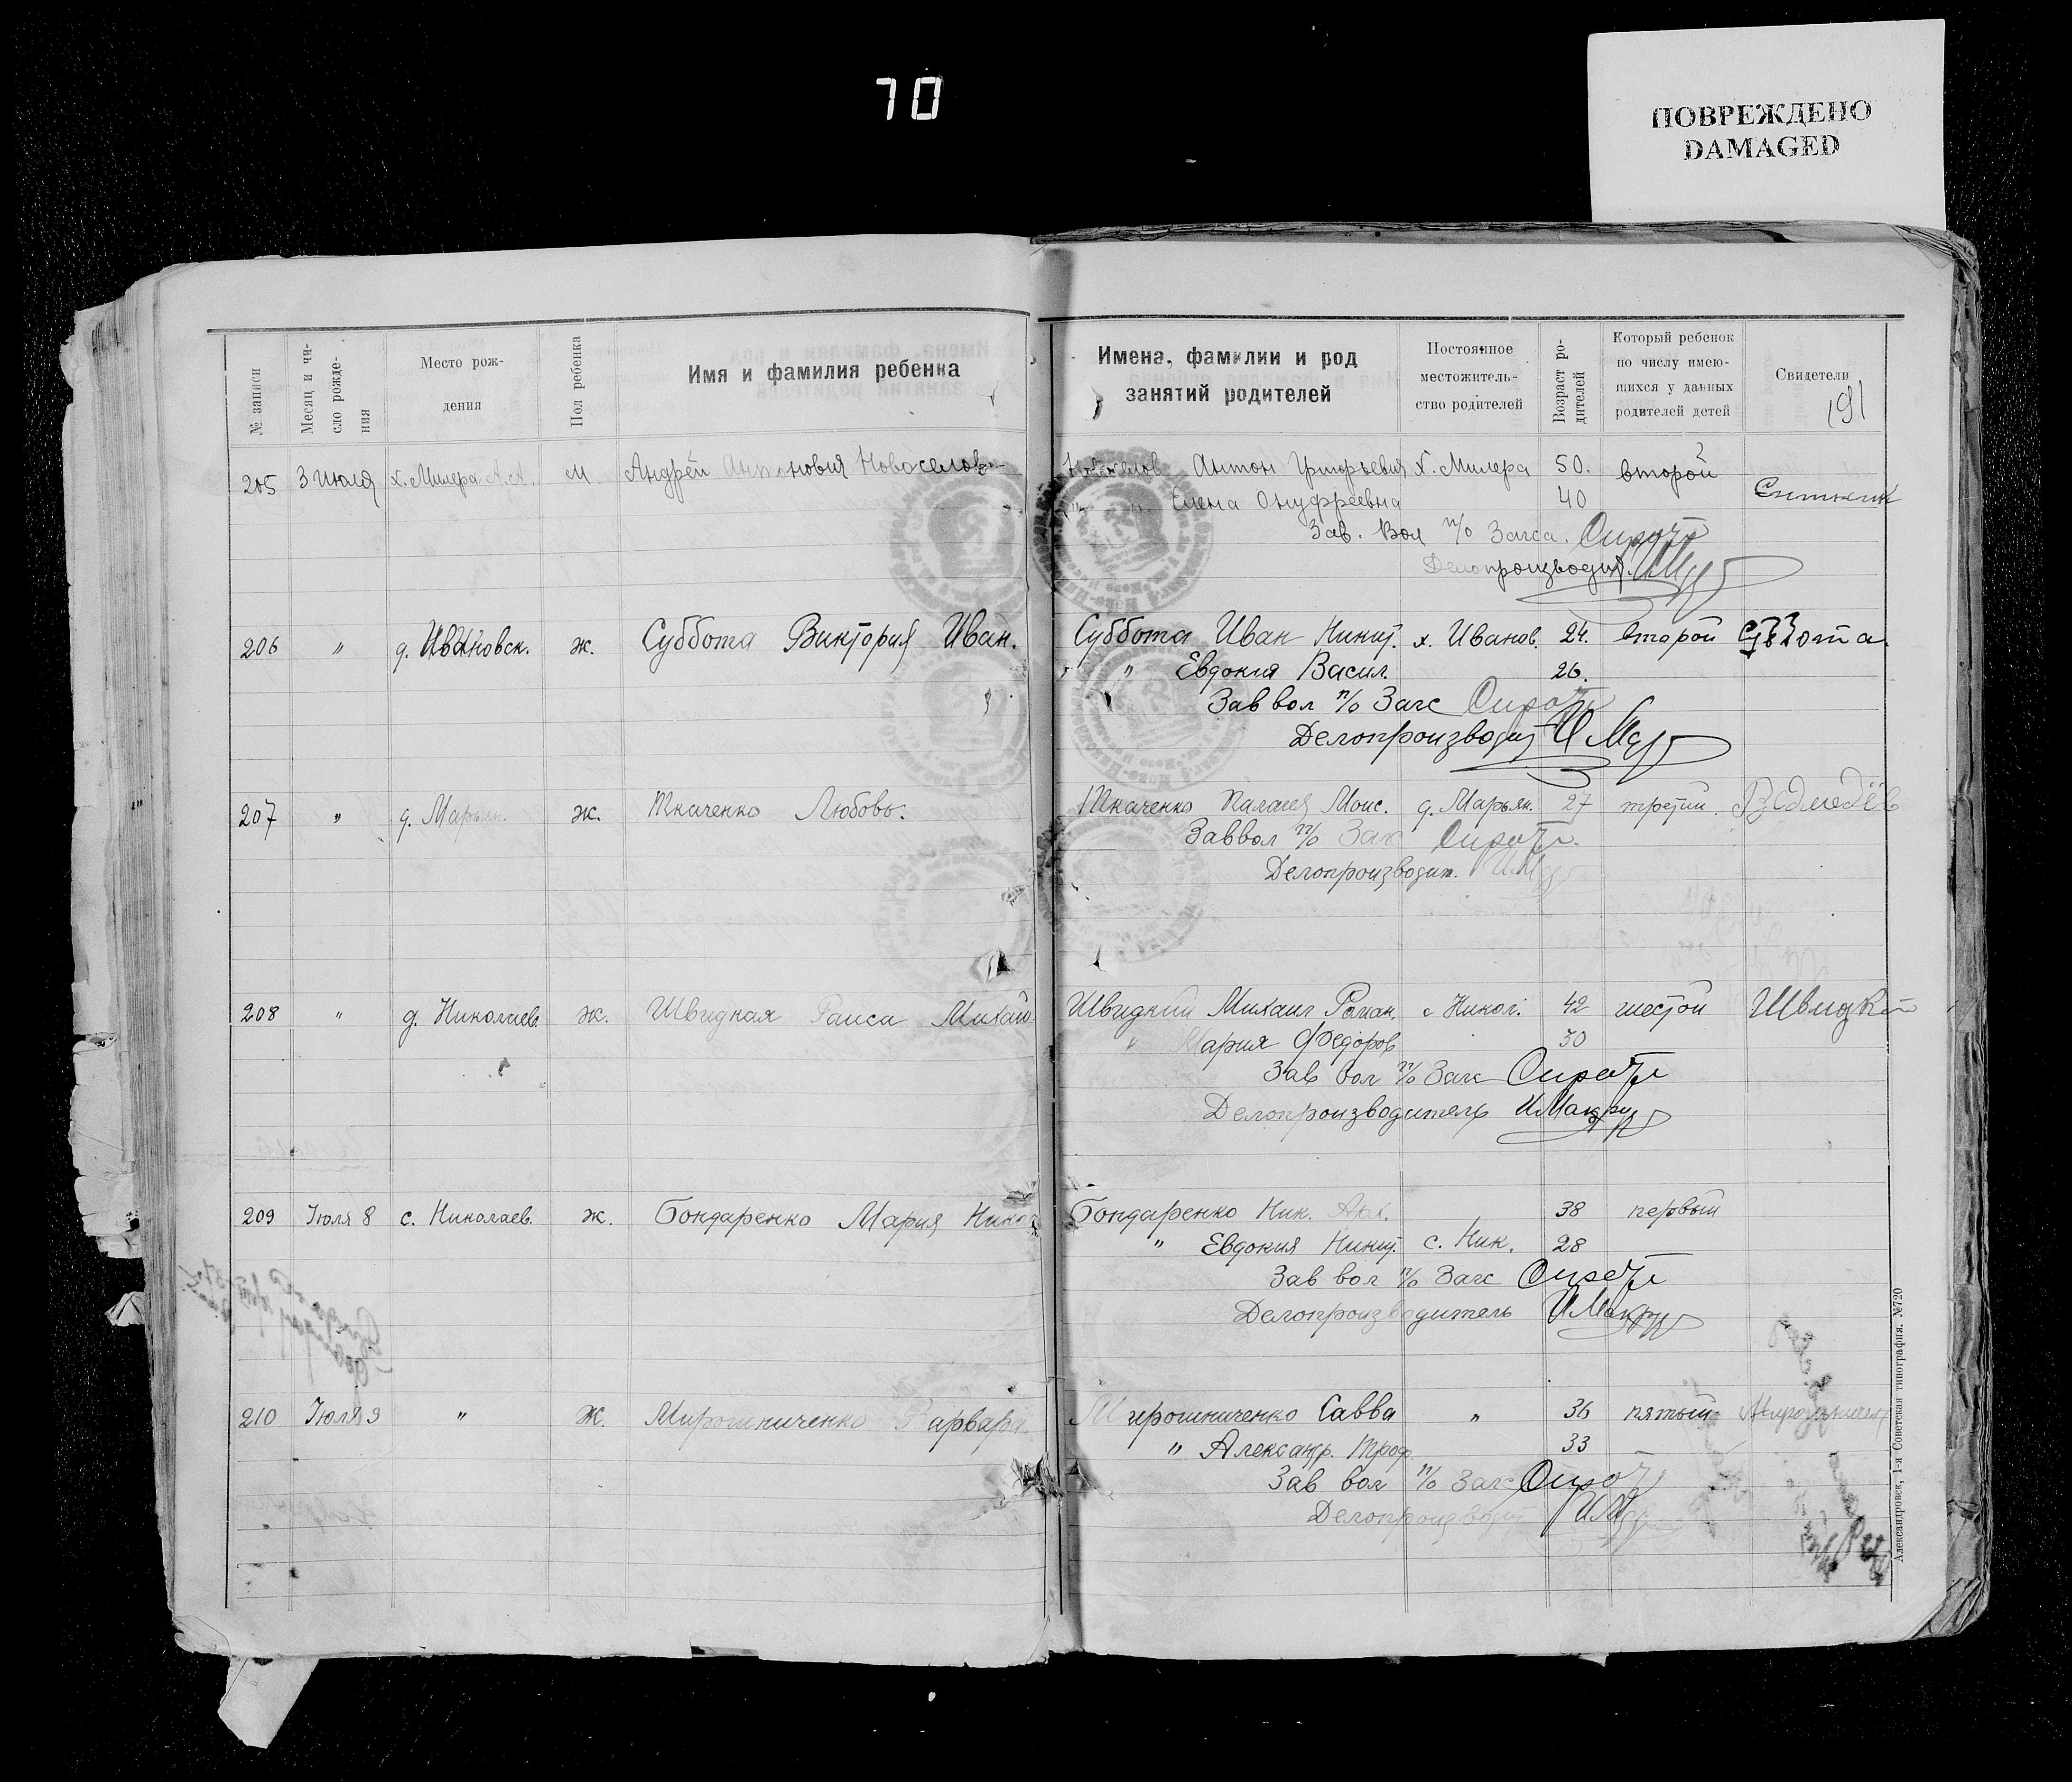 70
ПОВРЕЖДЕНО
DAMAGED
№ записи
Месяц и чи-
сло рожде-
ния
Место рож-
дения
Пол ребенка
Имя и фамилия ребенка
Имена, фамилии и род
занятий родителей
Постоянное
местожитель-
ство родителей
Возраст ро-
дителей
Который ребенок
по числу имею-
щихся у данных
родителей детей
Свидетели
191
205 3 июля х. Милера А.А. м Андрей Антоновия Новоселов Антон Григорьевия х. Милера 50. второй
" Елена Онуфреевна 40
Зав. Вол п/о Загса.
Делопроизводит.
206 " д. Ивановск. ж. Суббота Виктория Иван. Суббота Иван Никит. х. Иванов. 24. второй Суббота
" Евдокия Васил. 26.
Зав вол п/о Загс
Делопроизводит
207 " д. Марьян. ж. Ткаченко Любовь. Ткаченко Палагея Моис. д. Марьян. 27 третий.
Заввол п/о Загс
Делопроизводит.
208 " д. Николаев. ж. Швидкая Раиса Михай. Швидкий Михаил Роман. с Никол. 42 шестой Швидкий
" Мария Федоров 30
Зав вол п/о Загс
Делопроизводитель И Макру
209 Июля 8 с. Николаев. ж. Бондаренко Мария Никол Бондаренко Ник. 38 первый
" Евдокия Никит. с. Ник. 28
Зав вол п/о Загс
Делопроизводитель И Макру
210 Июля 9 " ж. Мирошниченко Варвара Мирошниченко Савва " 36 пятый Мирошничен
" Александр. Троф. 33
Зав вол п/о Загс
Делопроизводит
Александровск, 1-я Советская типография. №720